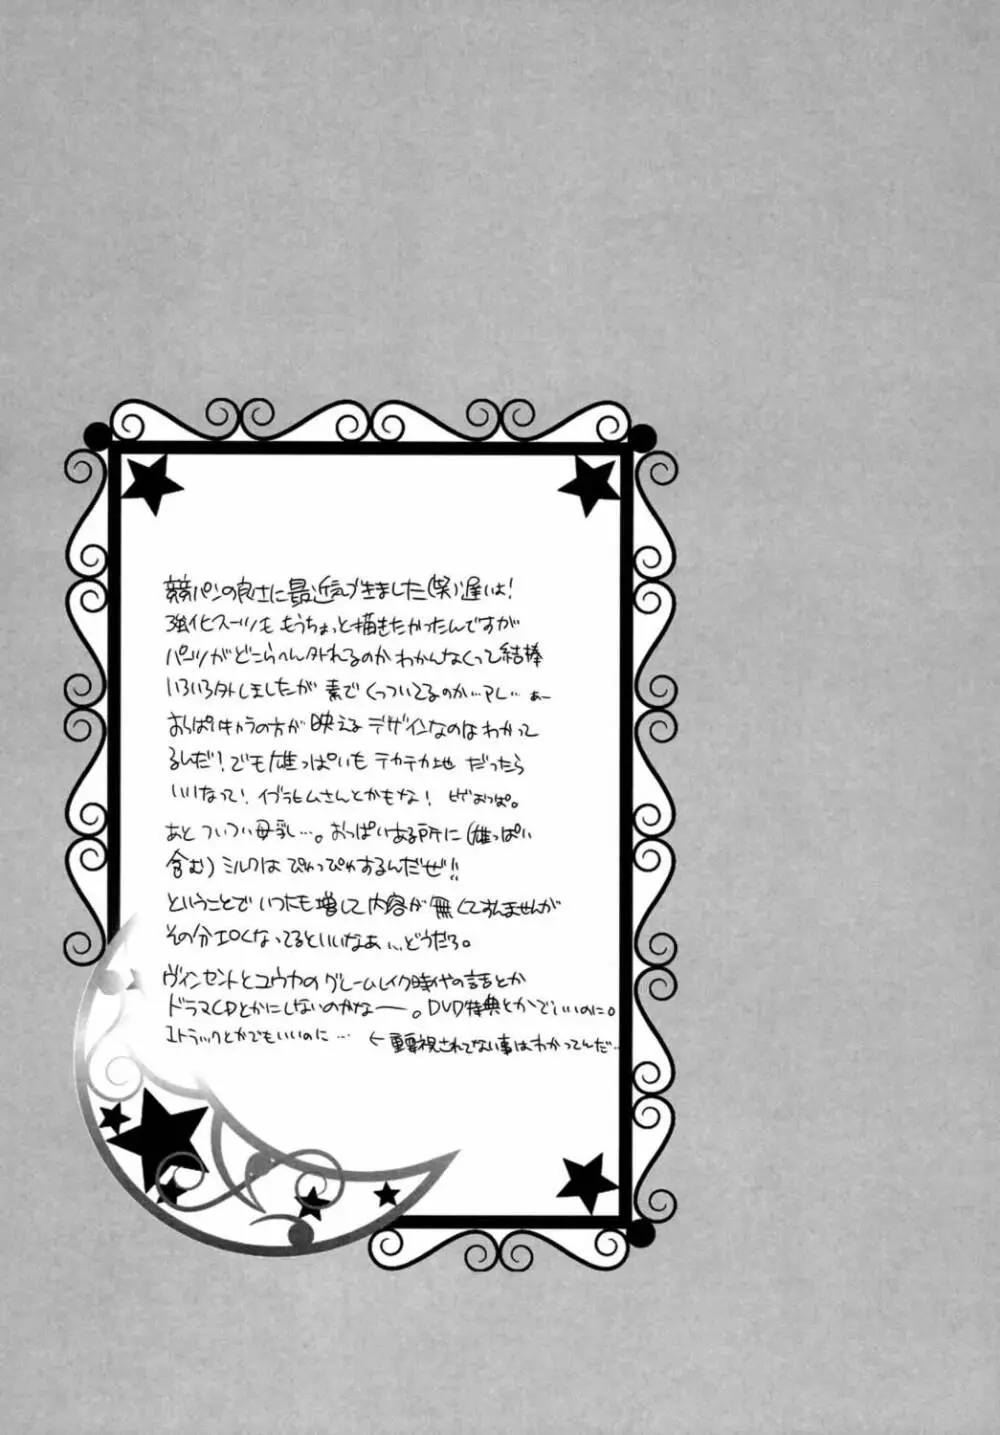 競パンの良さに最近気づきました(笑)遅いよ!
強化スーツももうちょっと描きたかったんですが
パンツがどこらへん外れるのかわかんなくって結構
いろいろ外しましたが 素でくっついてるのか…アレ… ぁー
おっぱいキャラの方が映えるデザインなのはわかって
るんだ!でも雄っぱいもテカテカ地だったら
いいなって!イブラヒムさんとかもな! ヒゲおっぱ。
あと ついつい母乳…。おっぱいある所に(雄っぱい
含む)ミルクはぴゅっぴゅするんだぜ!!
ということでいつにも増して内容が無くてすんませんが
その分エロくなってるといいなぁ…どうだろ。
ヴィンセントとユウカのグレームレイク時代の話とか
ドラマCDとかにしないのかなー。DVD特典とかでいいのに。
1トラックとかでもいいのに… ←重要視されてない事はわかってんだ…